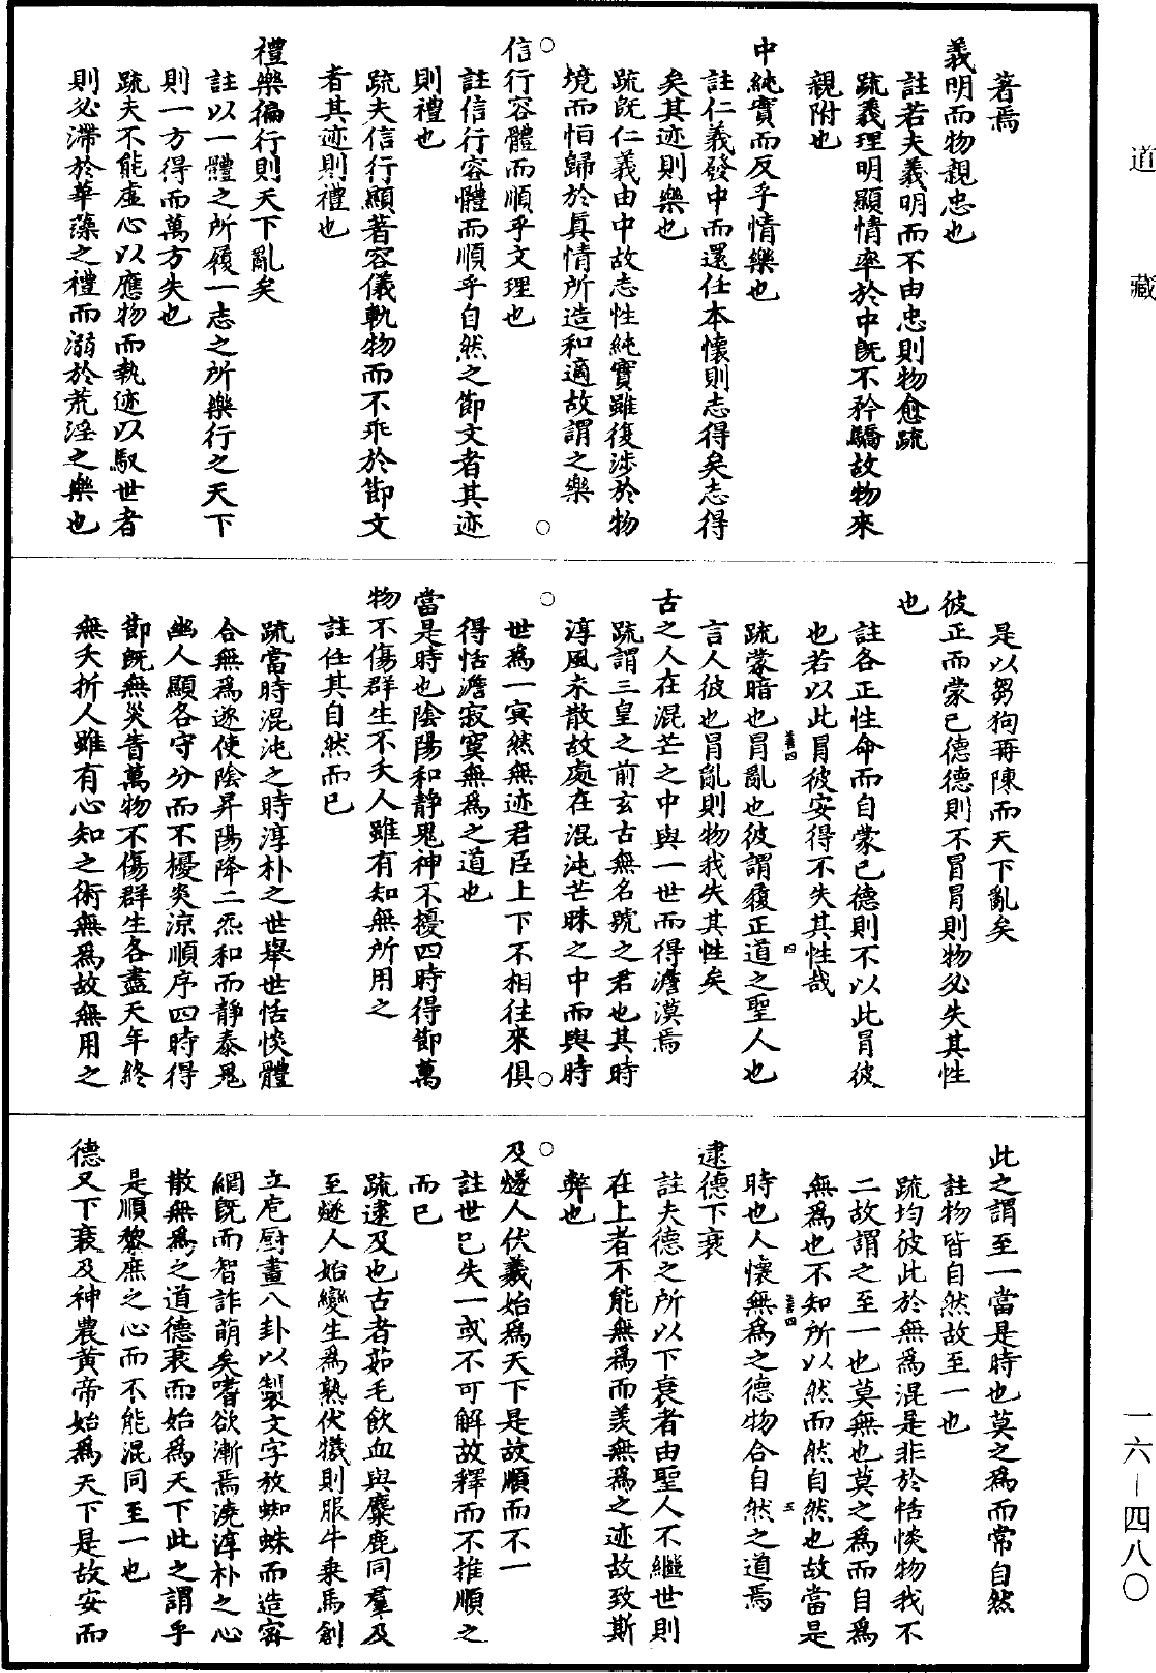 道藏
著焉
義明而物親忠也
註若夫義明而不由忠則物愈疏
疏義理明顯情率於中旣不矜驕故物來
親附也
中純實而反乎情樂也
註仁義發中而還任本懷則志得矣志得
矣其迹則樂也
疏旣仁義由中故志性純實雖復涉於物
境而怕歸於眞情所造和適故謂之樂
信行容體而順乎文理也
註信行容體而順乎自然之節文者其迹
則禮也
疏夫信行顯著容儀軌物而不乖於節文
者其迹則禮也
禮樂徧行則天下亂矣
註以一體之所履一志之所樂行之天下
則一方得而萬方失也
疏夫不能虛心以應物而執迹以馭世者
則必滯於華藻之禮而溺於荒淫之樂也
是以芻狗再陳而天下亂矣
彼正而蒙已德德則不冒冒則物必失其性
也
註各正性命而自蒙已德則不以此冒彼
也若以此冒彼安得不失其性哉
疏蒙暗也冒亂也彼謂履正道之聖人也
言人彼也冒亂則物我失其性矣
古之人在混芒之中與一世而得澹漠焉
疏謂三皇之前玄古無名號之君也其時
淳風未散故處在混沌芒昧之中而與時
世爲一冥然無迹君臣上下不相往來俱
得恬澹寂寞無爲之道也
當是時也陰陽和靜鬼神不擾四時得節萬
物不傷群生不夭人雖有知無所用之
註任其自然而已
疏當時混沌之時淳朴之世舉世恬惔體
合無爲遂使陰昇陽降二炁和而靜泰鬼
幽人顯各守分而不擾炎涼順序四時得
節旣無災眚萬物不傷群生各盡天年終
無夭折人雖有心知之術無爲故無用之
此之謂至一當是時也莫之爲而常自然
註物皆自然故至一也
疏均彼此於無爲混是非於恬惔物我不
二故謂之至一也莫無也莫之爲而自爲
無爲也不知所以然而然自然也故當是
時也人懷無爲之德物合自然之道焉
逮德下衰
註夫德之所以下衰者由聖人不繼世則
在上者不能無爲而羨無爲之迹故致斯
弊也
及燧人伏羲始爲天下是故順而不一
註世已失一或不可解故釋而不推順之
而已
疏逮及也古者茹毛飲血與麋鹿同羣及
至燧人始變生爲熟伏犧則服牛乘馬創
立庖廚畫八卦以製文字放蜘蛛而造密
網旣而智詐萌矣嗜欲漸焉澆淳朴之心
散無爲之道德衰而始爲天下此之謂乎
是順黎庶之心而不能混同至一也
德又下衰及神農黃帝始爲天下是故安而
一六—四八〇